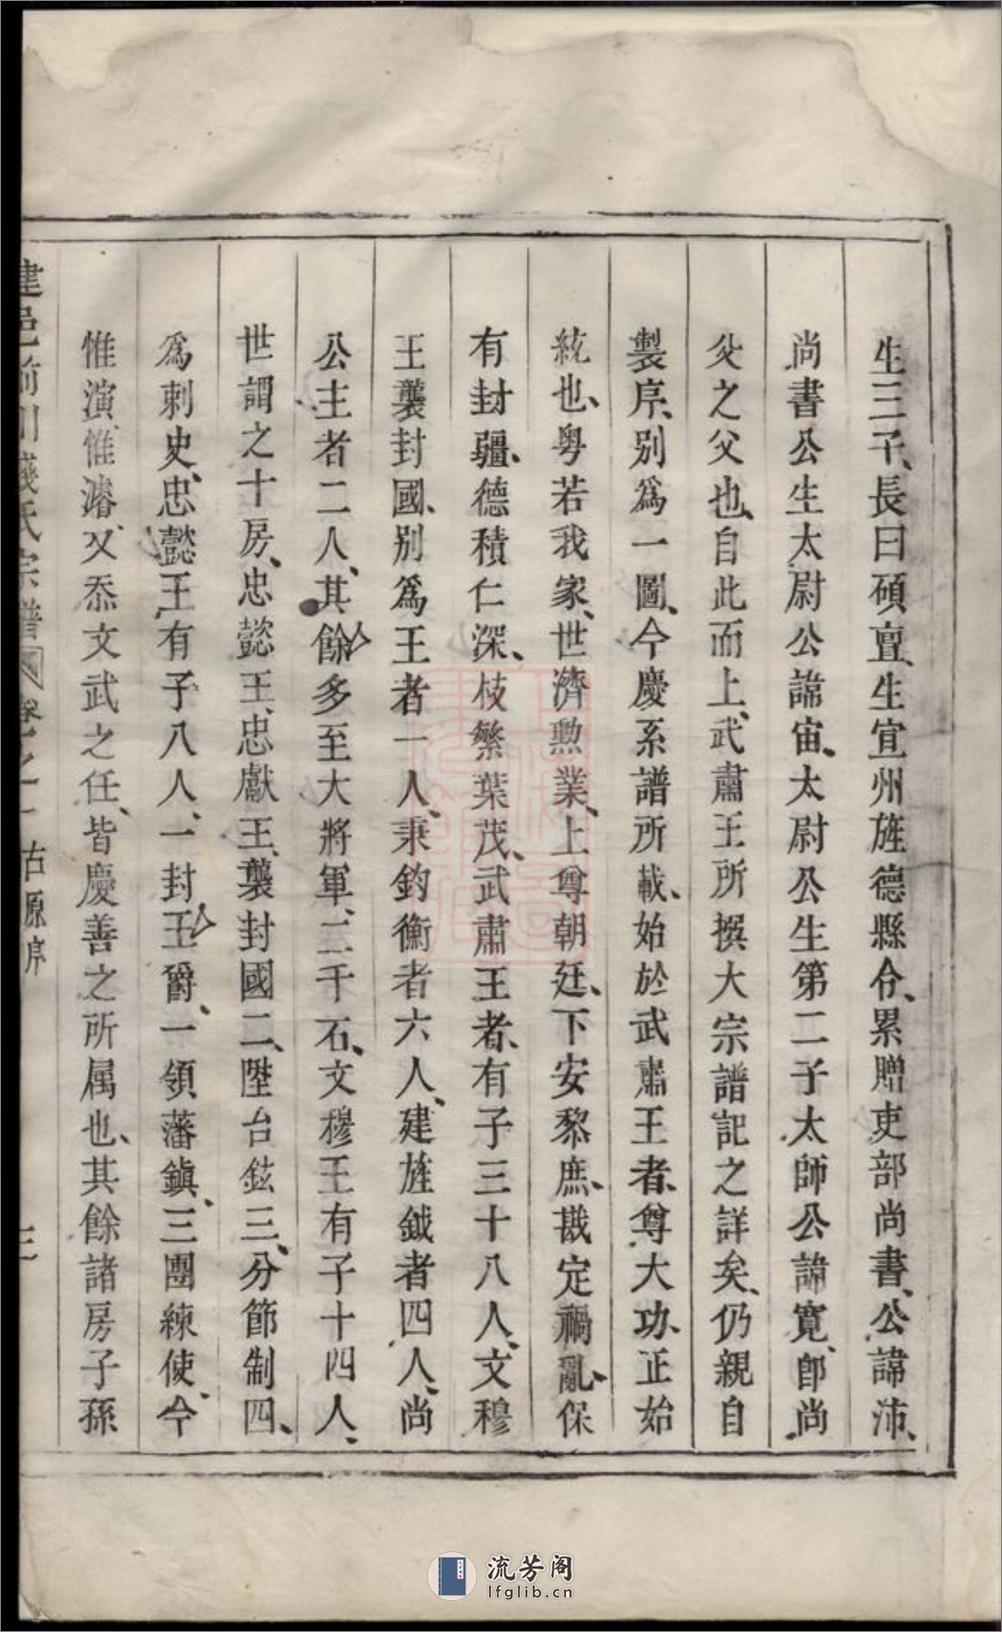 生三子、長曰碩亶、生宣州旌德縣令、累贈吏部尚書、公諱沛、
尚書公生太尉公諱宙、太尉公生第二子太師公諱寬、卽尚
父之父也、自此而上、武肅王所撰大宗譜記之詳矣、仍親自
製序、別爲一圖、今慶系譜所載、始於武肅王者、尊大功、正始
統也、粤若我家、世濟勲業、上尊朝廷、下安黎庶、戡定禍亂、保
有封疆、德積仁深、枝繁葉茂、武肅王者、有子三十八人、文穆
王襲封國、別爲王者一人、秉鈞衡者六人、建旌鉞者四人、尚
公主者二人、其餘多至大將軍、二千石、文穆王有子十四人、
世謂之十房、忠懿王、忠獻王、襲封國二、陞台鉉三、分節制四、
爲刺史、忠懿王、有子八人、一封王爵、一領藩鎮、三團練使、今
惟演、惟濬、又忝文武之任、皆慶善之所属也、其餘諸房子孫
建邑前川錢氏宗譜 卷之一 古源序 三
流芳阁
lfglib.cn